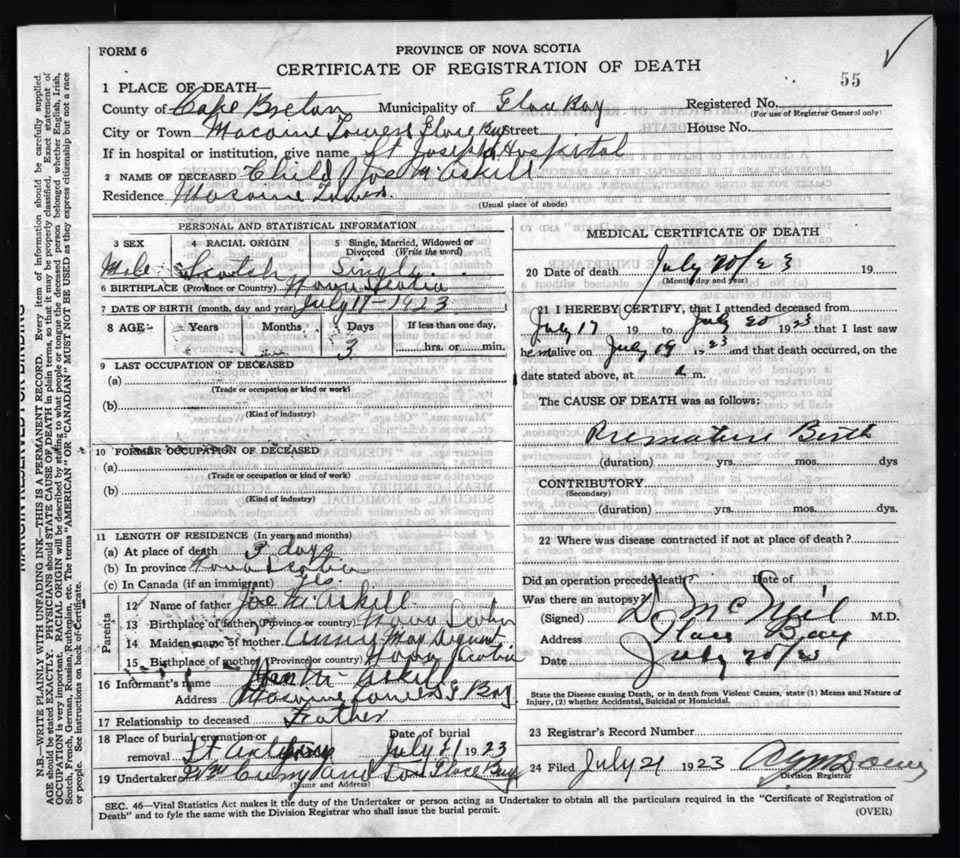 FORM 6
PROVINCE OF NOVA SCOTIA
CERTIFICATE OF REGISTRATION OF DEATH
55
1 PLACE OF DEATH—
County of Cape Breton Municipality of Glace Bay Registered No.
(For use of Registrar General only)
City or Town Glace Bay Street House No.
If in hospital or institution, give name St Joseph's Hospital
2 NAME OF DECEASED Child Joe McAskill
Residence
(Usual place of abode)
PERSONAL AND STATISTICAL INFORMATION
3 SEX 4 RACIAL ORIGIN 5 Single, Married, Widowed or Divorced (Write the word)
Male Scotch Single
6 BIRTHPLACE (Province or Country) Nova Scotia
7 DATE OF BIRTH (month, day and year) July 17 - 1923
8 AGE Years Months Days If less than one day,
3 hrs. or min.
9 LAST OCCUPATION OF DECEASED
(a)
(Trade or occupation or kind or work)
(b)
(Kind of industry)
10 FORMER OCCUPATION OF DECEASED
(a)
(Trade or occupation or kind of work)
(b)
(Kind of industry)
11 LENGTH OF RESIDENCE (In years and months)
(a) At place of death 3 days
(b) In province Nova Scotia
(c) In Canada (if an immigrant) yes
Parents
12 Name of father Joe McAskill
13 Birthplace of father (Province or country) Nova Scotia
14 Maiden name of mother Annie May
15 Birthplace of mother (Province or country) Nova Scotia
16 Informant's name McAskill
Address G Bay
17 Relationship to deceased Father
18 Place of burial, cremation or removal Date of burial
July 21 1923
19 Undertaker Curry and Son Glace Bay
(Name and Address)
MEDICAL CERTIFICATE OF DEATH
20 Date of death July 20/23 19
(Month day and year)
21 I HEREBY CERTIFY, that I attended deceased from
July 17 19 to July 20 1923 that I last saw
him alive on July 19 1923 and that death occurred, on the
date stated above, at m.
The CAUSE OF DEATH was as follows:
Premature Birth
(duration) yrs. mos. dys
CONTRIBUTORY
(Secondary)
(duration) yrs. mos. dys.
22 Where was disease contracted if not at place of death?
Did an operation precede death? Date of
Was there an autopsy?
(Signed) D McNeil M.D.
Address Glace Bay
Date July 20/23
State the Disease causing Death, or in death from Violent Causes, state (1) Means and Nature of Injury, (2) whether Accidental, Suicidal or Homicidal.
23 Registrar's Record Number
24 Filed July 21 1923
Division Registrar
SEC. 46—Vital Statistics Act makes it the duty of the Undertaker or person acting as Undertaker to obtain all the particulars required in the "Certificate of Registration of
Death" and to fyle the same with the Division Registrar who shall issue the burial permit.
(OVER)
MARGIN RESERVED FOR BINDING
N.B.—WRITE PLAINLY WITH UNFADING INK—THIS IS A PERMANENT RECORD. Every item of information should be carefully supplied.
AGE should be stated EXACTLY. PHYSICIANS should STATE CAUSE OF DEATH in plain terms, so that it may be properly classified. Exact statement of
OCCUPATION is very important. RACIAL ORIGIN will be described by stating to what people or tongue the deceased person belonged whether English, Irish,
Scotch, French, German, Russian, Ruthenian, etc. The terms "AMERICAN" OR "CANADIAN" MUST NOT BE USED as they express citizenship but not a race
or people. See instructions on back of Certificate.